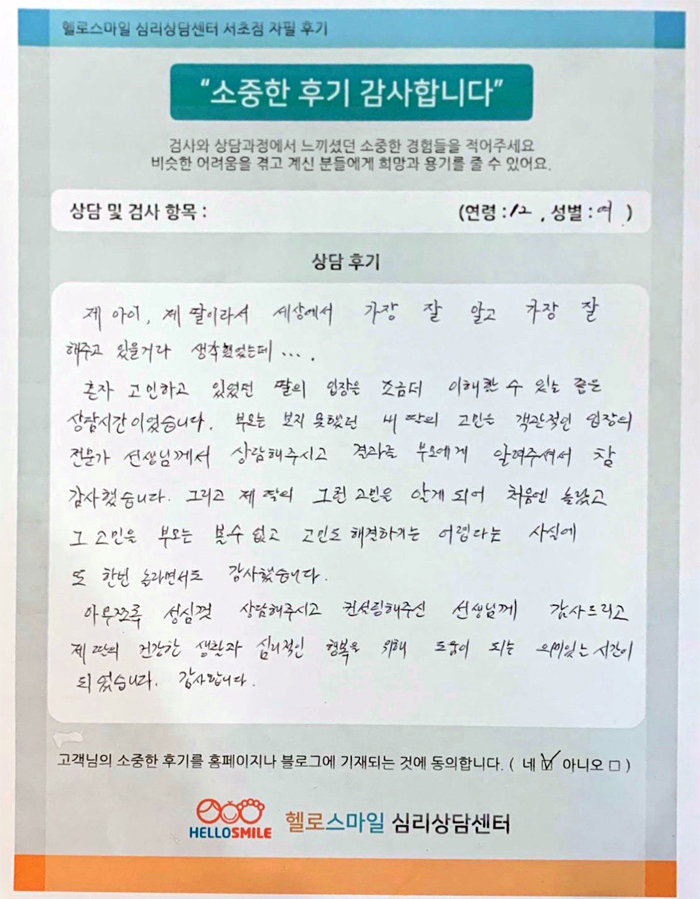 헬로스마일 심리상담센터 서초점 자필 후기
“소중한 후기 감사합니다”
검사와 상담과정에서 느끼셨던 소중한 경험들을 적어주세요
비슷한 어려움을 겪고 계신 분들에게 희망과 용기를 줄 수 있어요.
상담 및 검사 항목 : (연령 : 12 , 성별 : 여 )
상담 후기
제 아이, 제 딸이라서 세상에서 가장 잘 알고 가장 잘
해주고 있을거라 생각했었는데 ···.
혼자 고민하고 있었던 딸의 입장을 조금더 이해할 수 있는 좋은
상담시간이었습니다. 부모는 보지 못했던 내 딸의 고민을 객관적인 입장의
전문가 선생님께서 상담해주시고 결과를 부모에게 알려주셔서 참
감사했습니다. 그리고 제 딸의 그런 고민을 알게 되어 처음엔 놀랐고
그 고민을 부모는 볼수 없고 고민도 해결하기는 어렵다는 사실에
또 한번 놀라면서도 감사했습니다.
아무쪼록 성심껏 상담해주시고 컨설링해주신 선생님께 감사드리고
제 딸의 건강한 생활과 심리적인 행복을 위해 도움이 되는 의미있는 시간이
되었습니다. 감사합니다.
고객님의 소중한 후기를 홈페이지나 블로그에 기재되는 것에 동의합니다. ( 네 ☑ 아니오 □ )
HELLOSMILE 헬로스마일 심리상담센터